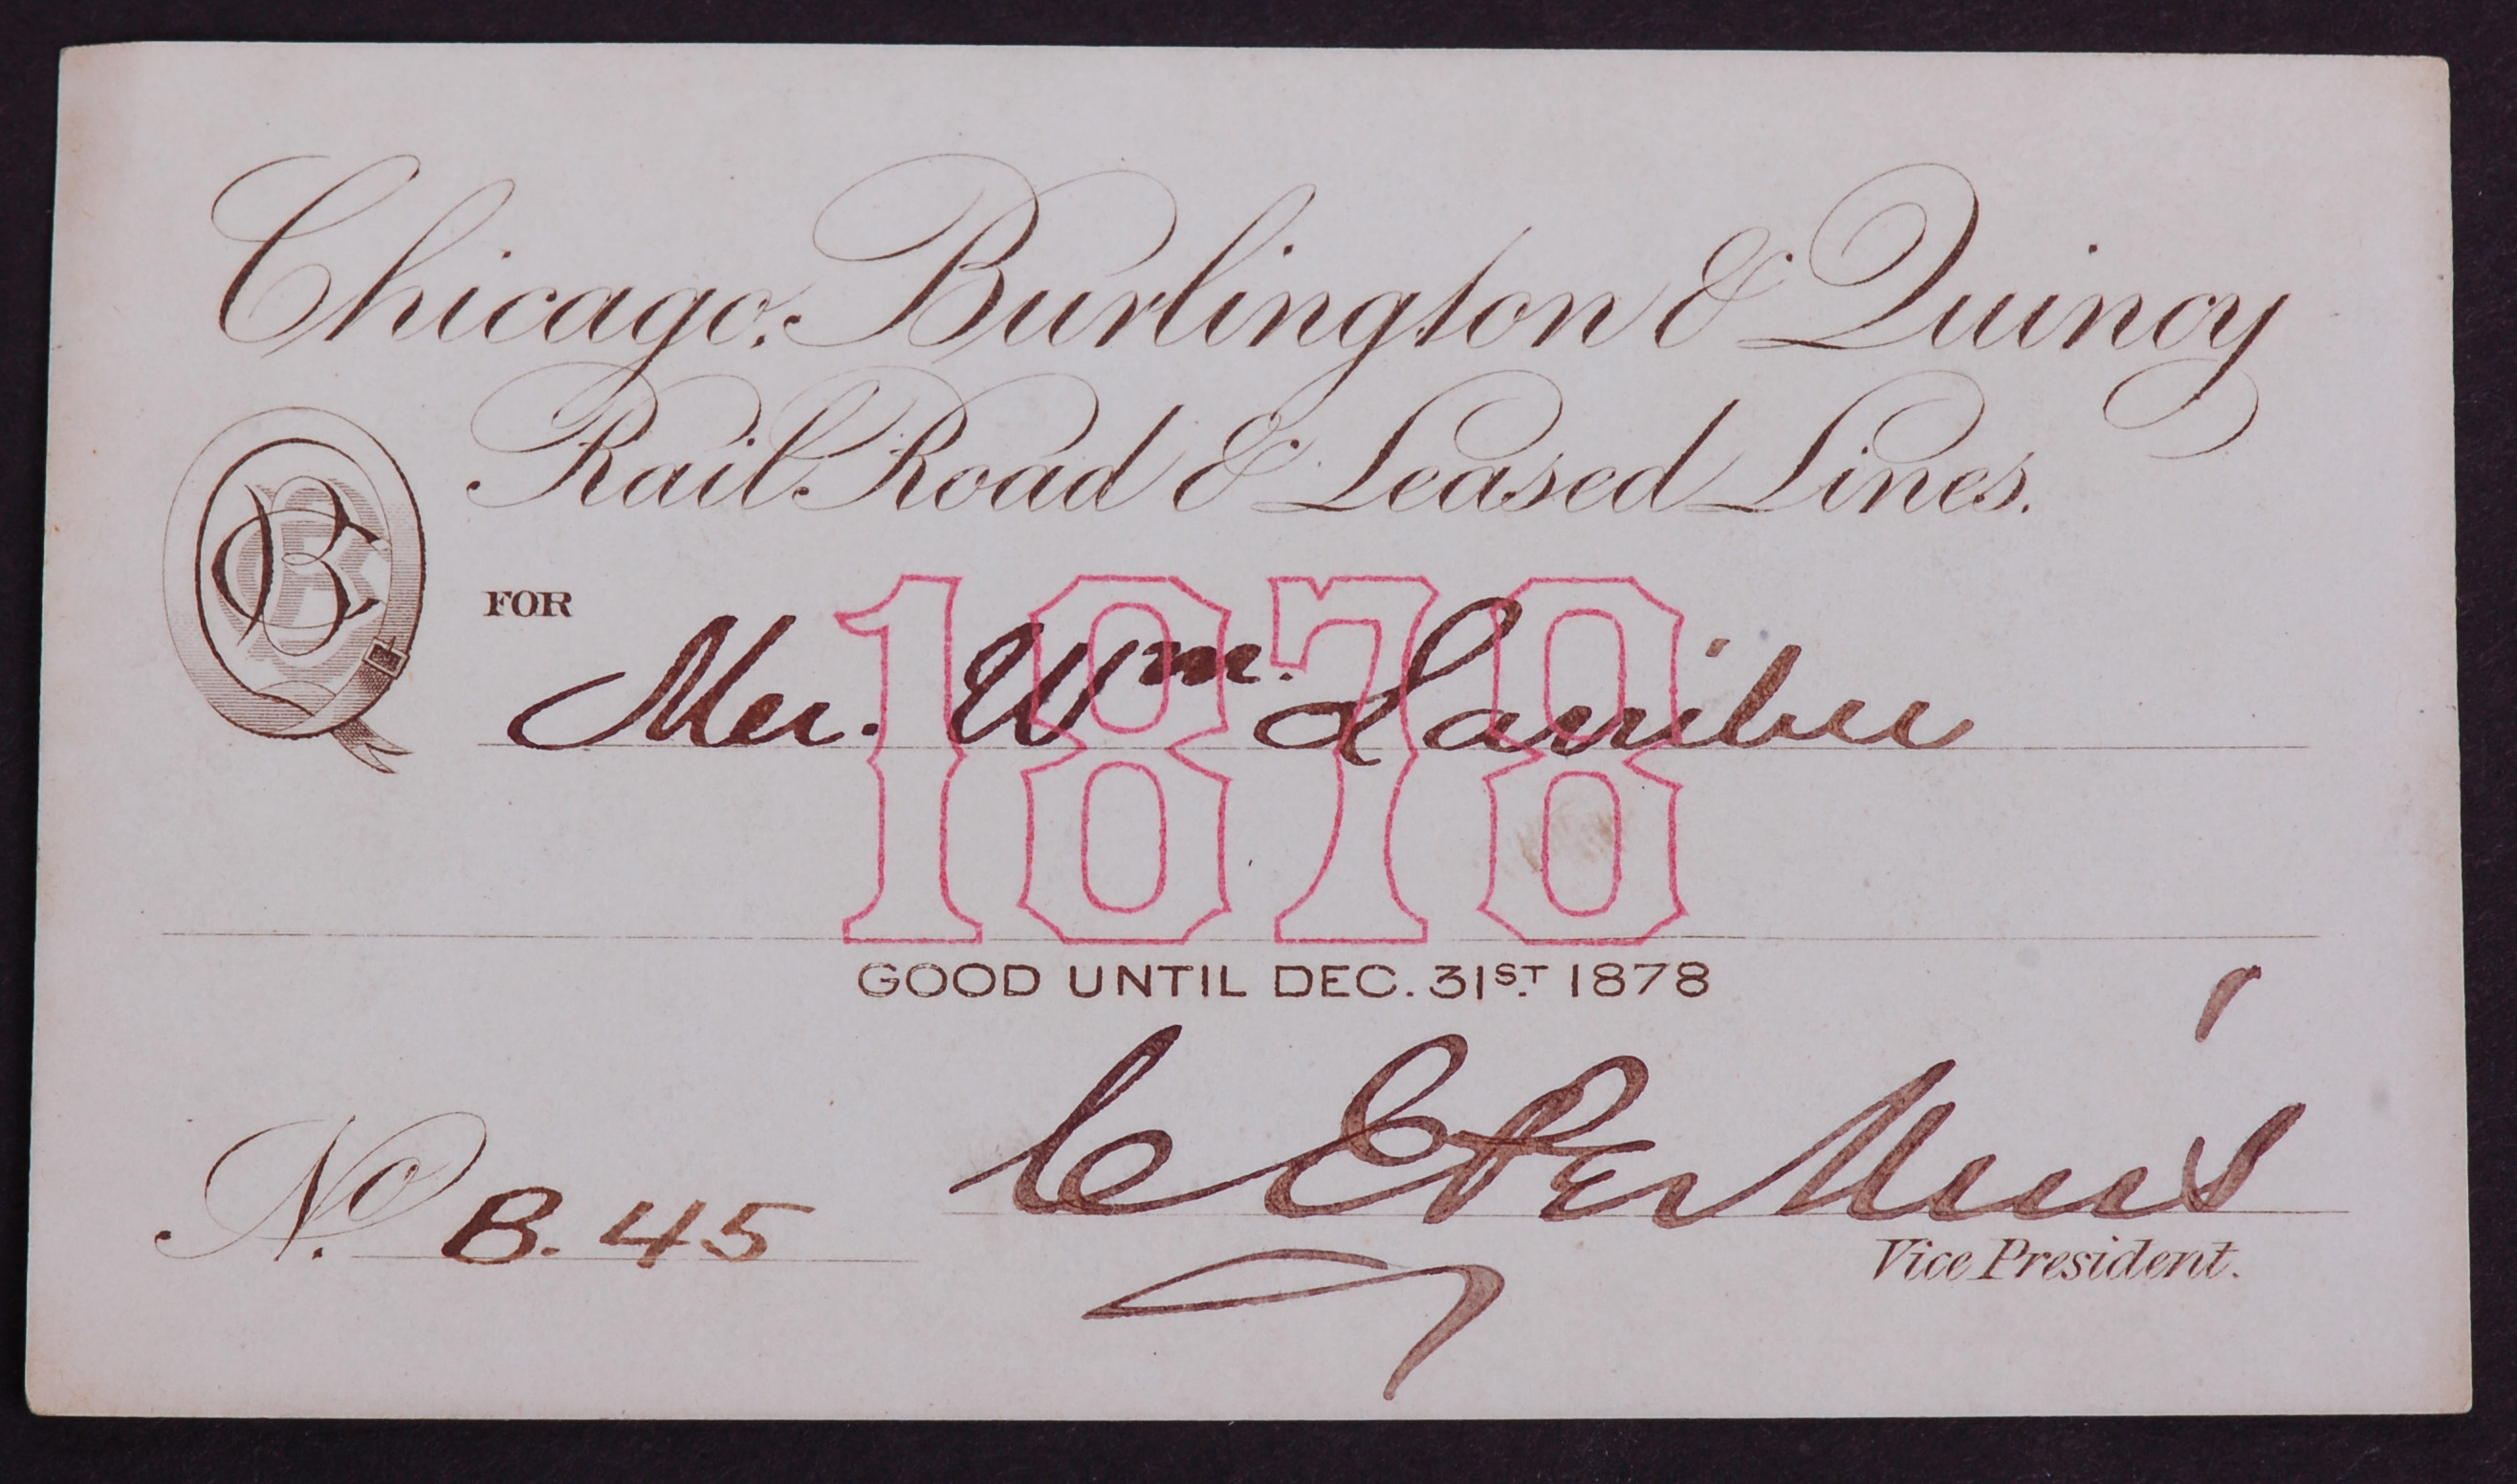 Chicago, Burlington & Quincy
Rail Road & Leased Lines.
CBQ
FOR
1878
Mr. Wm.
GOOD UNTIL DEC. 31ST. 1878
No. B. 45
C E Perkins
Vice President.